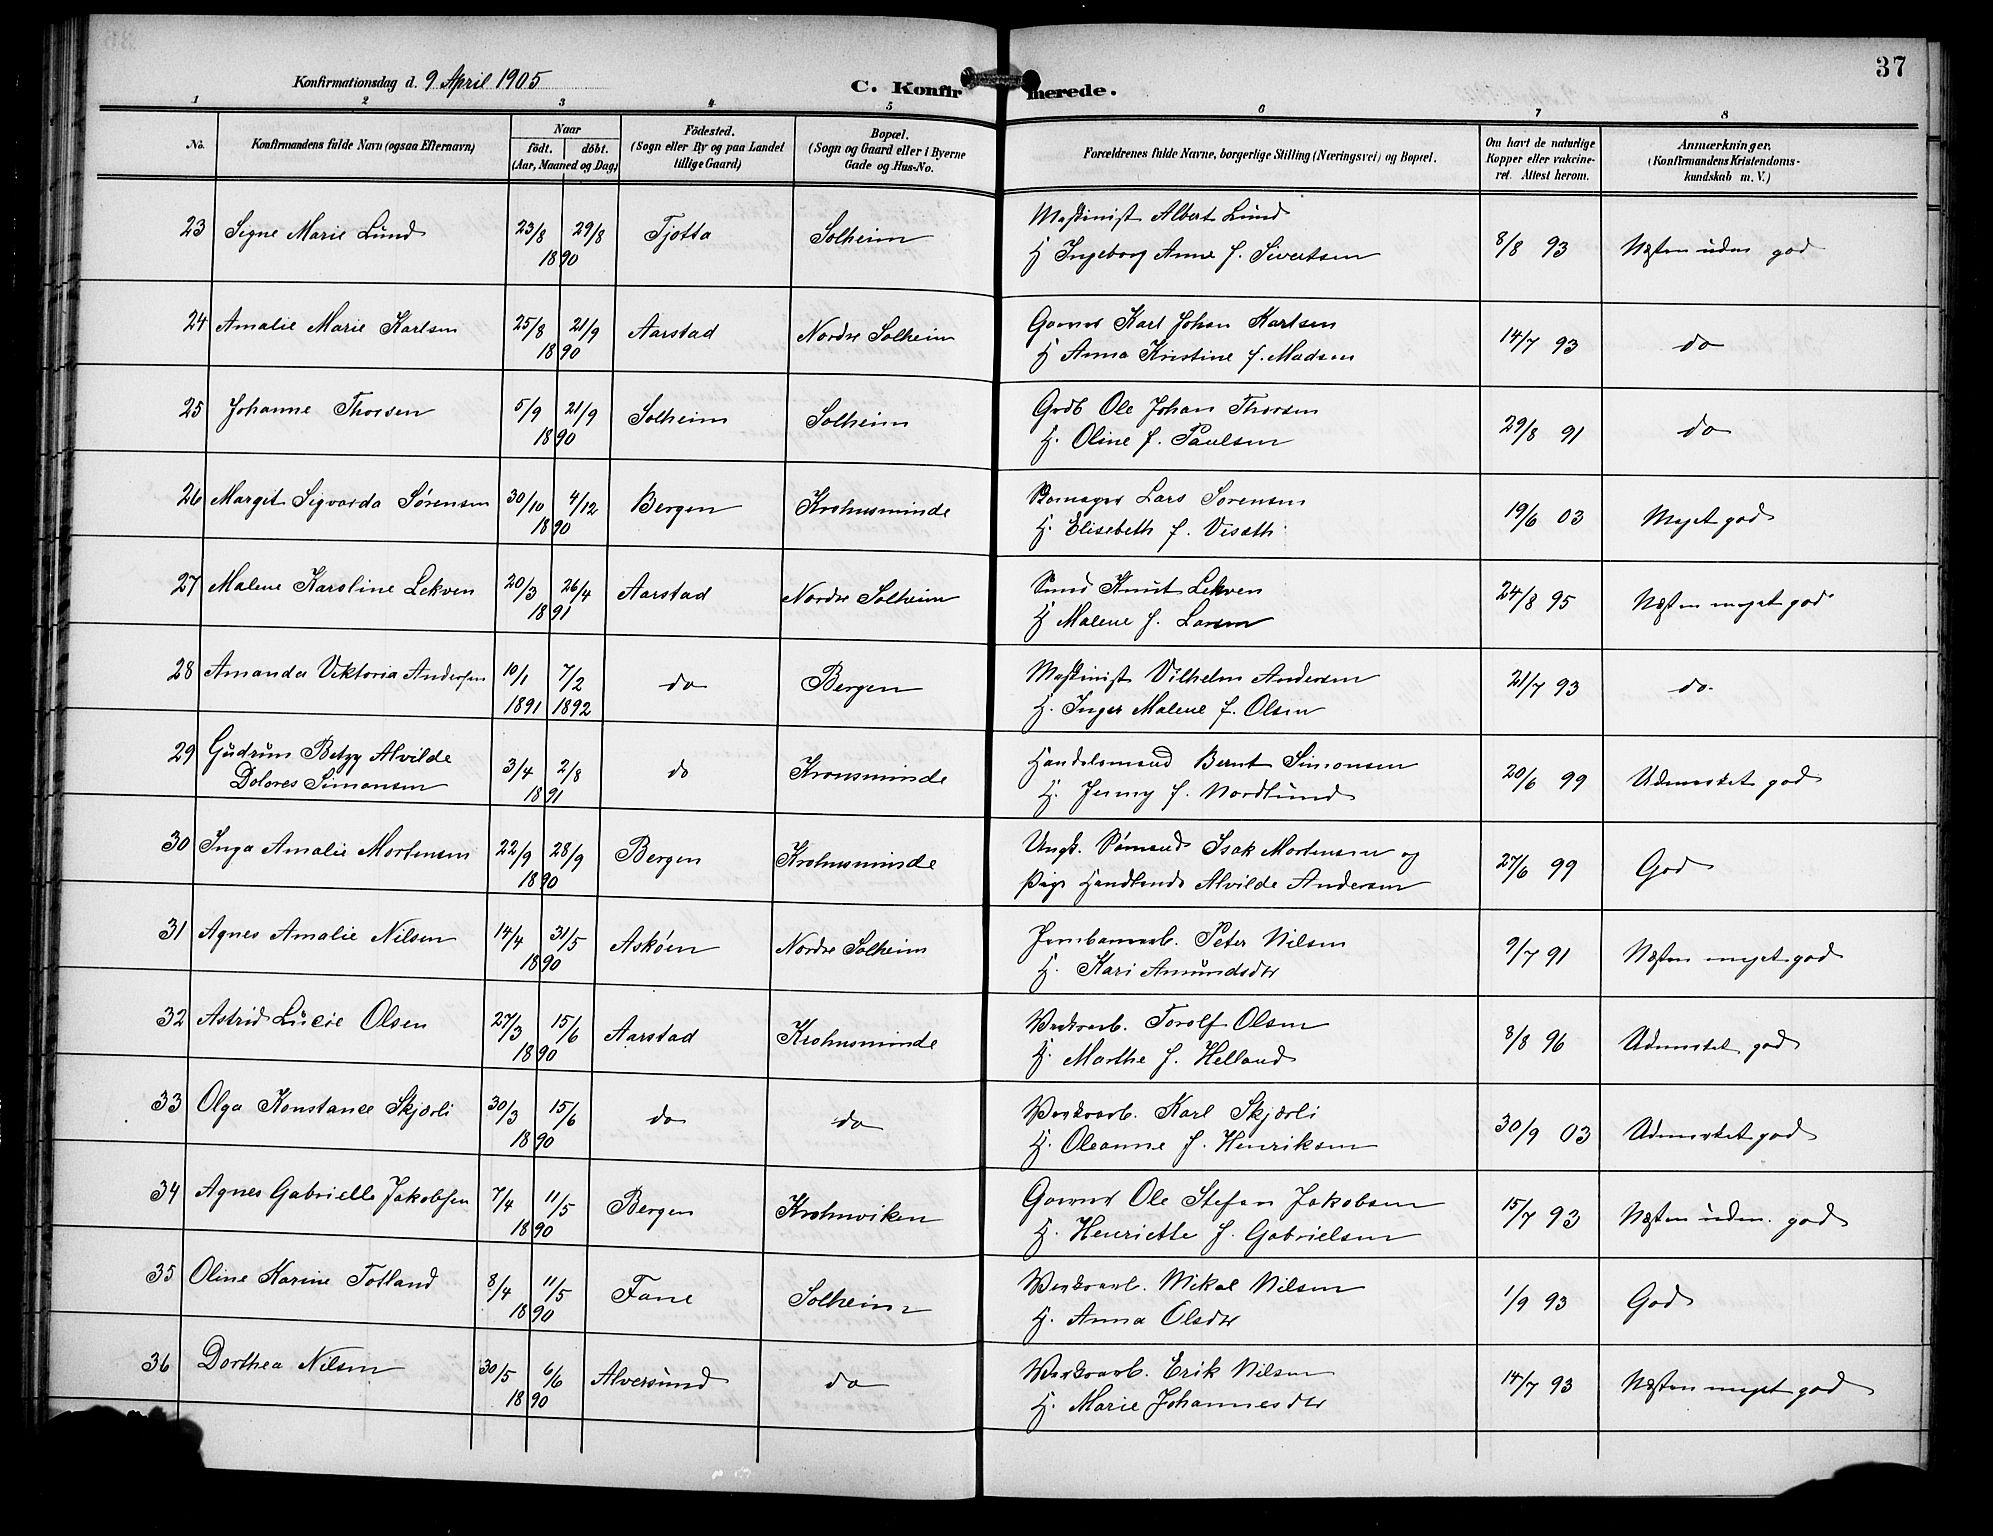 37
Konfirmationsdag d. 9 April 1905
C. Konfirmerede.
1 2 3 4 5 6 7 8
No. | Konfirmandens fulde Navn (ogsaa Efternavn) | Naar født. døbt. (Aar, Maaned og Dag) | Födested. (Sogn eller By og paa Landet tillige Gaard) | Bopæl. (Sogn og Gaard eller i Byerne Gade og Hus-No. | Forældrenes fulde Navne, borgerlige Stilling (Næringsvei) og Bopæl. | Om havt de naturlige Kopper eller vakcineret. Attest herom. | Anmærkninger. (Konfirmandens Kristendomskundskab m. V.)
23 Signe Marie Lund 23/8 29/8 1890 Tjotta Solheim Maskinist Albert Lund 8/8 93 Næsten udm god
H Ingeborg Anne f. Sivertsen
24 Amalie Marie Karlsen 25/8 21/9 1890 Aarstad Nordre Solheim Karl Johan Karlsen 14/7 93 do
H Anna Kristine f. Madsen
25 Johanne Thorsen 5/9 21/9 1890 Solheim Solheim Ole Johan Thorsen 29/8 91 do
H. Oline f. Paulsen
26 Margit Sigvarda Sørensen 30/10 4/12 1890 Bergen Krohnsminde Lars Sørensen 19/6 03 Meget god
H. Elisabeth f.
27 Malene Karoline Lekven 20/3 26/4 1891 Aarstad Nordre Solheim Knut Lekven 24/8 95 Næsten meget god
H Malene f. Larsen
28 Amanda Viktoria Andersen 10/1 1891 7/2 1892 do Bergen Maskinist Vilhelm Andersen 21/7 93 do.
H. Inger Malene f. Olsen
29 Gudrun Betzy Alvilde
Dolores Simonsen 3/4 2/8 1891 do Kronsminde Handelsmand Bernt Simonsen 20/6 99 Udmerket god
H. Jenny f. Nordlund
30 Inga Amalie Mortensen 22/9 28/9 1890 Bergen Krohnsminde Ungk. Sømand Isak Mortensen og 27/6 99 God
Pige Alvilde Andersen
31 Agnes Amalie Nilsen 14/4 31/5 1890 Askøen Nordre Solheim Jernbanearb. Peter Nilsen 9/7 91 Næsten meget god
H. Kari Amundsdtr
32 Astrid Lucie Olsen 27/3 15/6 1890 Aarstad Krohnsminde Verksarb. Torolf Olsen 8/8 96 Udmerket god
H. Marthe f. Helland
33 Olga Konstance Skjærli 30/3 15/6 1890 do do Verksarb. Karl Skjærli 30/9 03 Udmerket god
H. Oleanne f. Henriksen
34 Agnes Gabrielle Jakobsen 7/4 11/5 1890 Bergen Krohnviken Ole Stefan Jakobsen 15/7 93 Næsten udm. god
H. Henriette f. Gabrielsen
35 Oline Karine Totland 8/4 11/5 1890 Fane Solheim Verksarb. Mikal Nilsen 1/9 93 God
H. Anna Olsdtr
36 Dorthea Nilsen 30/5 6/6 1890 Alversund do Verksarb. Erik Nilsen 14/7 93 Næsten meget god
H. Marie Johannesdtr